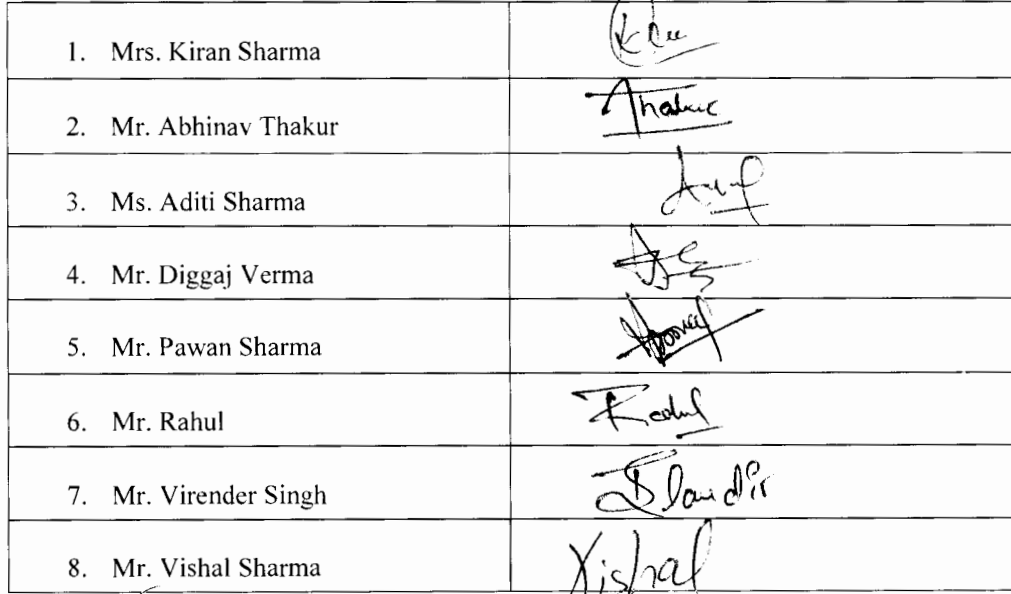 1. Mrs. Kiran Sharma
2. Mr. Abhinav Thakur Thakur
3. Ms. Aditi Sharma
4. Mr. Diggaj Verma
5. Mr. Pawan Sharma
6. Mr. Rahul Rahul
7. Mr. Virender Singh
8. Mr. Vishal Sharma Vishal